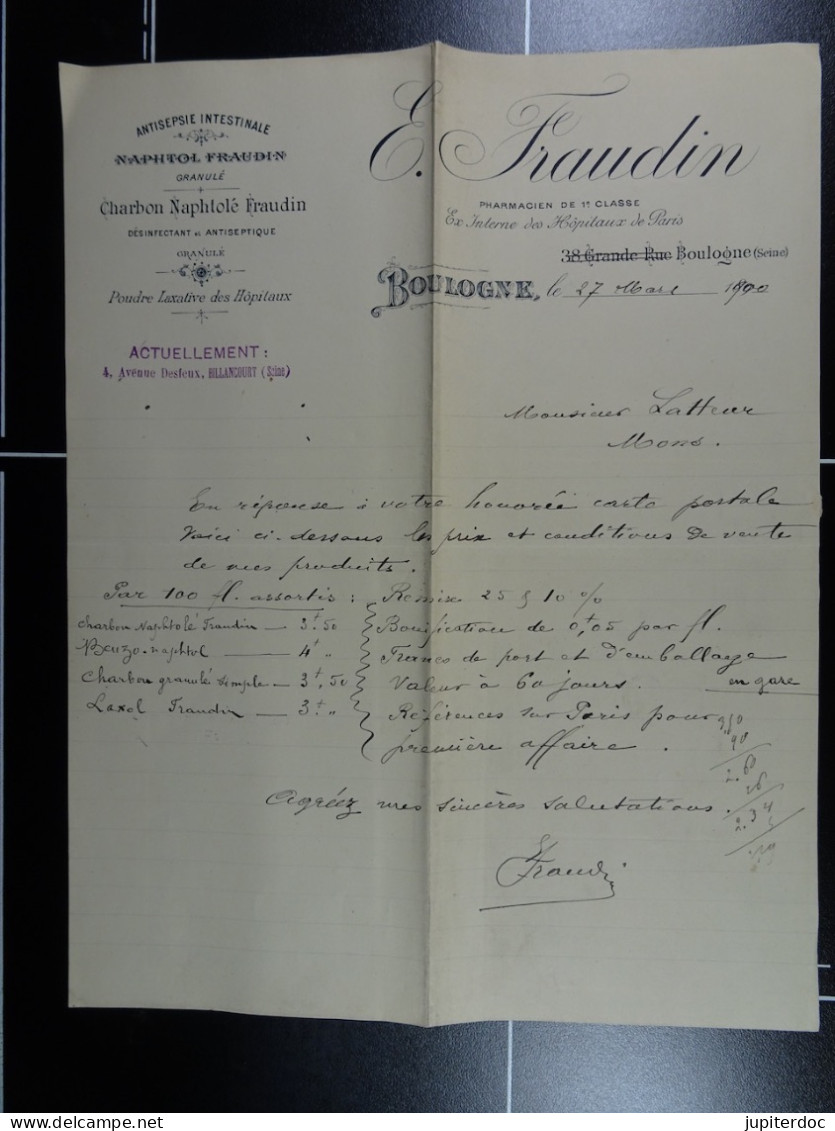 ANTISEPSIE INTESTINALE
NAPHTOL FRAUDIN
GRANULÉ
Charbon Naphtolé Fraudin
DÉSINFECTANT et ANTISEPTIQUE
GRANULÉ
Poudre Laxative des Hôpitaux
ACTUELLEMENT :
4, Avenue Desfeux, BILLANCOURT (Seine)
E. Fraudin
PHARMACIEN DE 1e CLASSE
Ex Interne des Hôpitaux de Paris
38 Grande Rue Boulogne (Seine)
BOULOGNE, le 27 Mars 1890
Monsieur Latteur
Mons.
En réponse à votre honorée carte postale
voici ci-dessous les prix et conditions de vente
de mes produits.
Par 100 fl. assortis : Remise 25 & 10 %
Charbon Naphtolé Fraudin — 3f.50 Bonification de 0f,05 par fl.
Benzo-naphtol — 4f " Francs de port et d'emballage
en gare
Charbon granulé simple — 3f,50 Valeur à 60 jours.
Laxol Fraudin — 3f " Références sur Paris pour
première affaire.
Agréez mes sincères salutations.
2.60
26
2.34
EFraudin
jupiterdoc
delcampe.net